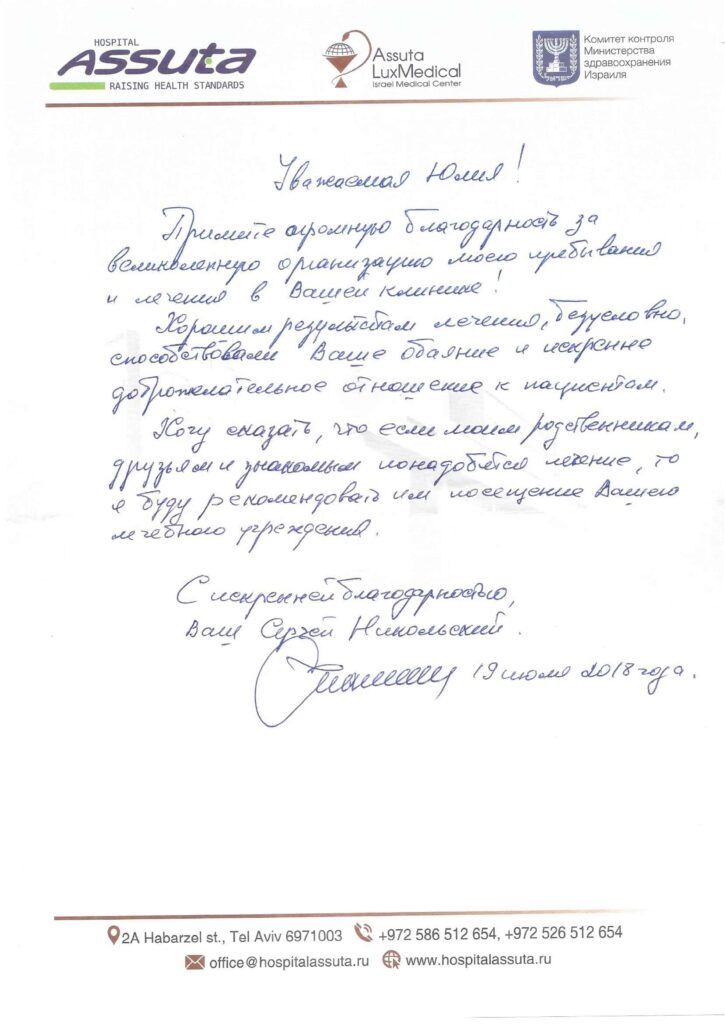 HOSPITAL
Assuta
RAISING HEALTH STANDARDS
Assuta
LuxMedical
Israel Medical Center
Комитет контроля
Министерства
здравоохранения
Израиля
Уважаемая Юлия!
Примите огромную благодарность за
великолепную организацию моего пребывания
и лечения в Вашей клинике!
Хорошим результатам лечения, безусловно,
способствовали Ваше обаяние и искренне
доброжелательное отношение к пациентам.
Хочу сказать, что если моим родственникам,
друзьям и знакомым понадобится лечение, то
я буду рекомендовать им посещение Вашего
лечебного учреждения.
С искренней благодарностью,
Ваш Сергей Никольский.
19 июля 2018 года.
2A Habarzel st., Tel Aviv 6971003 +972 586 512 654, +972 526 512 654
office@hospitalassuta.ru www.hospitalassuta.ru